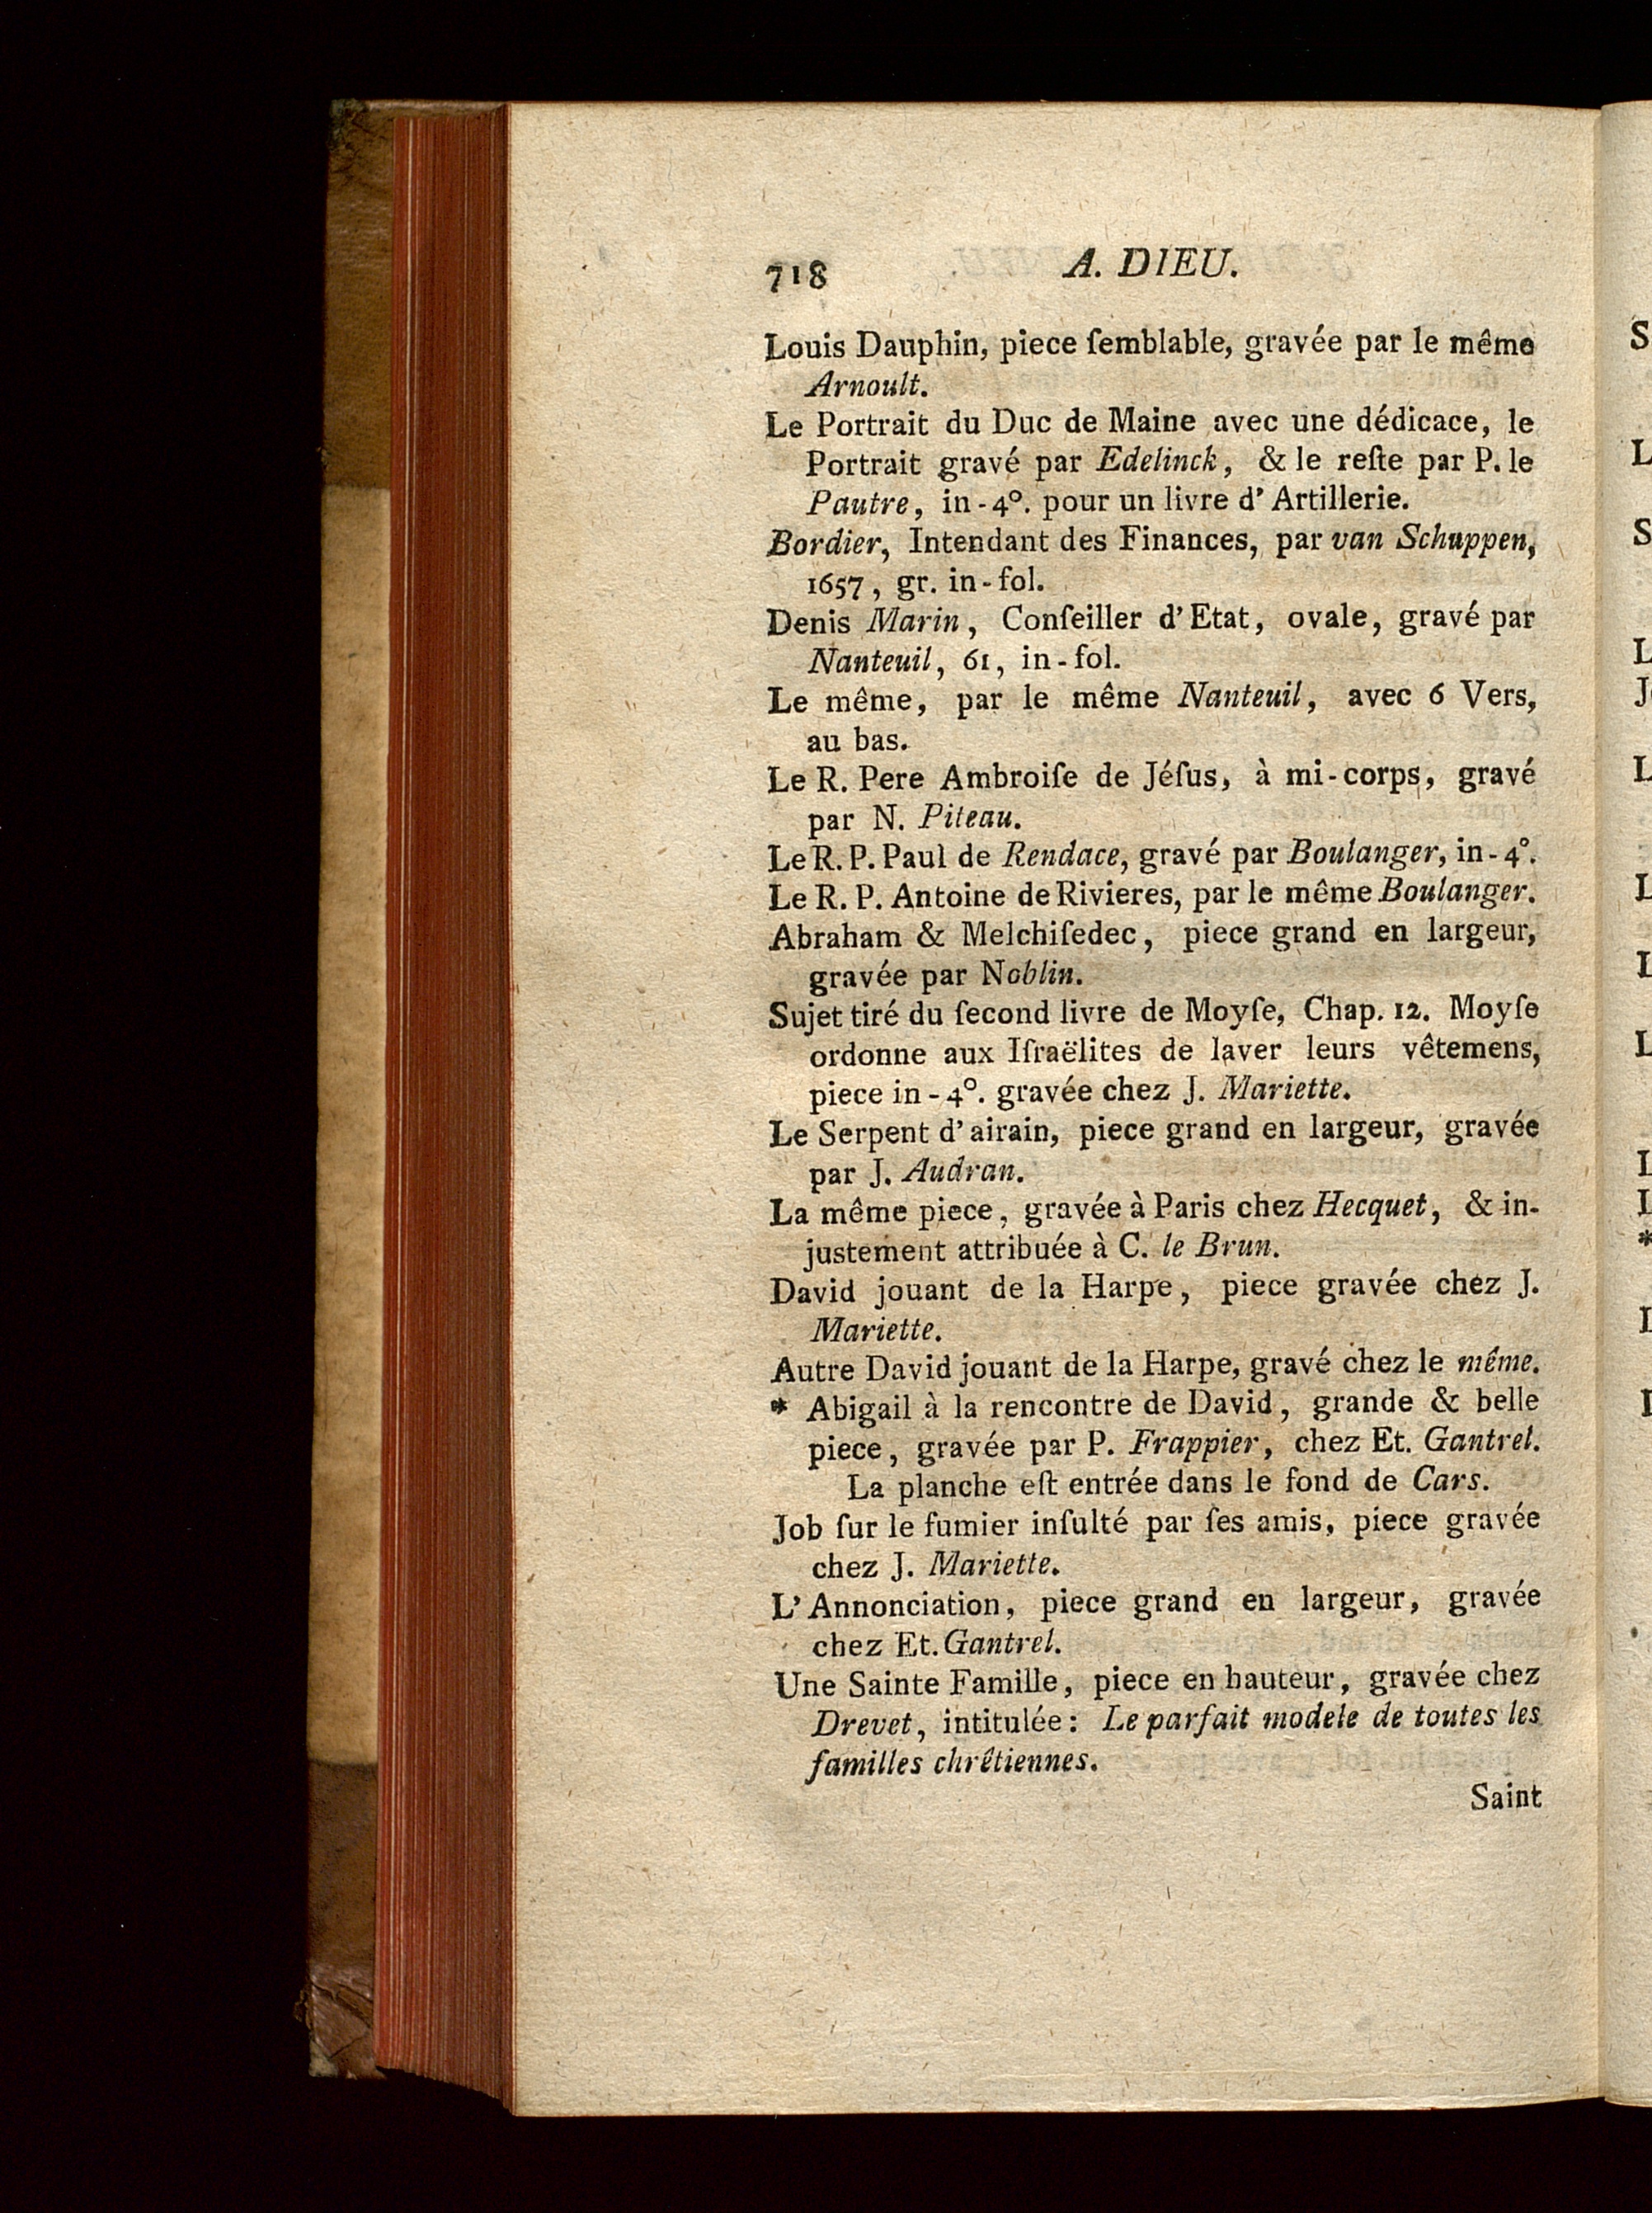 718 A. DIEU.
Louis Dauphin, piece ſemblable, gravée par le même
Arnoult.
Le Portrait du Duc de Maine avec une dédicace, le
Portrait gravé par Edelinck, & le reſte par P. le
Pautre, in-4°. pour un livre d'Artillerie.
Bordier, Intendant des Finances, par van Schuppen,
1657, gr. in-fol.
Denis Marin, Conſeiller d'Etat, ovale, gravé par
Nanteuil, 61, in-fol.
Le même, par le même Nanteuil, avec 6 Vers,
au bas.
Le R. Pere Ambroiſe de Jéſus, à mi-corps, gravé
par N. Piteau.
Le R. P. Paul de Rendace, gravé par Boulanger, in-4°.
Le R. P. Antoine de Rivieres, par le même Boulanger.
Abraham & Melchiſedec, piece grand en largeur,
gravée par Noblin.
Sujet tiré du ſecond livre de Moyſe, Chap. 12. Moyſe
ordonne aux Iſraëlites de laver leurs vêtemens,
piece in-4°. gravée chez J. Mariette.
Le Serpent d'airain, piece grand en largeur, gravée
par J. Audran.
La même piece, gravée à Paris chez Hecquet, & in-
justement attribuée à C. le Brun.
David jouant de la Harpe, piece gravée chez J.
Mariette.
Autre David jouant de la Harpe, gravé chez le même.
* Abigail à la rencontre de David, grande & belle
piece, gravée par P. Frappier, chez Et. Gantrel.
La planche eſt entrée dans le fond de Cars.
Job ſur le fumier inſulté par ſes amis, piece gravée
chez J. Mariette.
L'Annonciation, piece grand en largeur, gravée
chez Et. Gantrel.
Une Sainte Famille, piece en hauteur, gravée chez
Drevet, intitulée: Le parfait modele de toutes les
familles chrêtiennes.
Saint